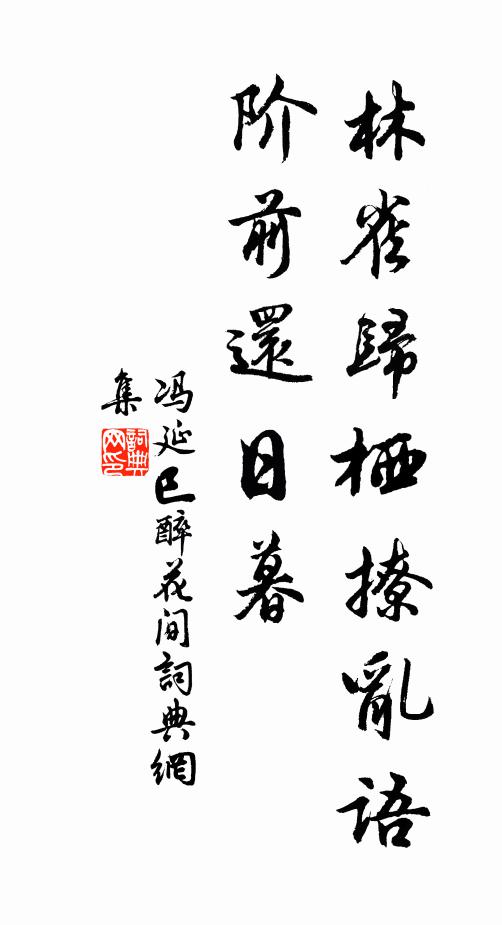 林雀歸栖撩亂語
阶前還日暮
冯延巳醉花间詞典網
集
詞典
网印